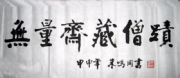 無量齋藏僧蹟
甲申年